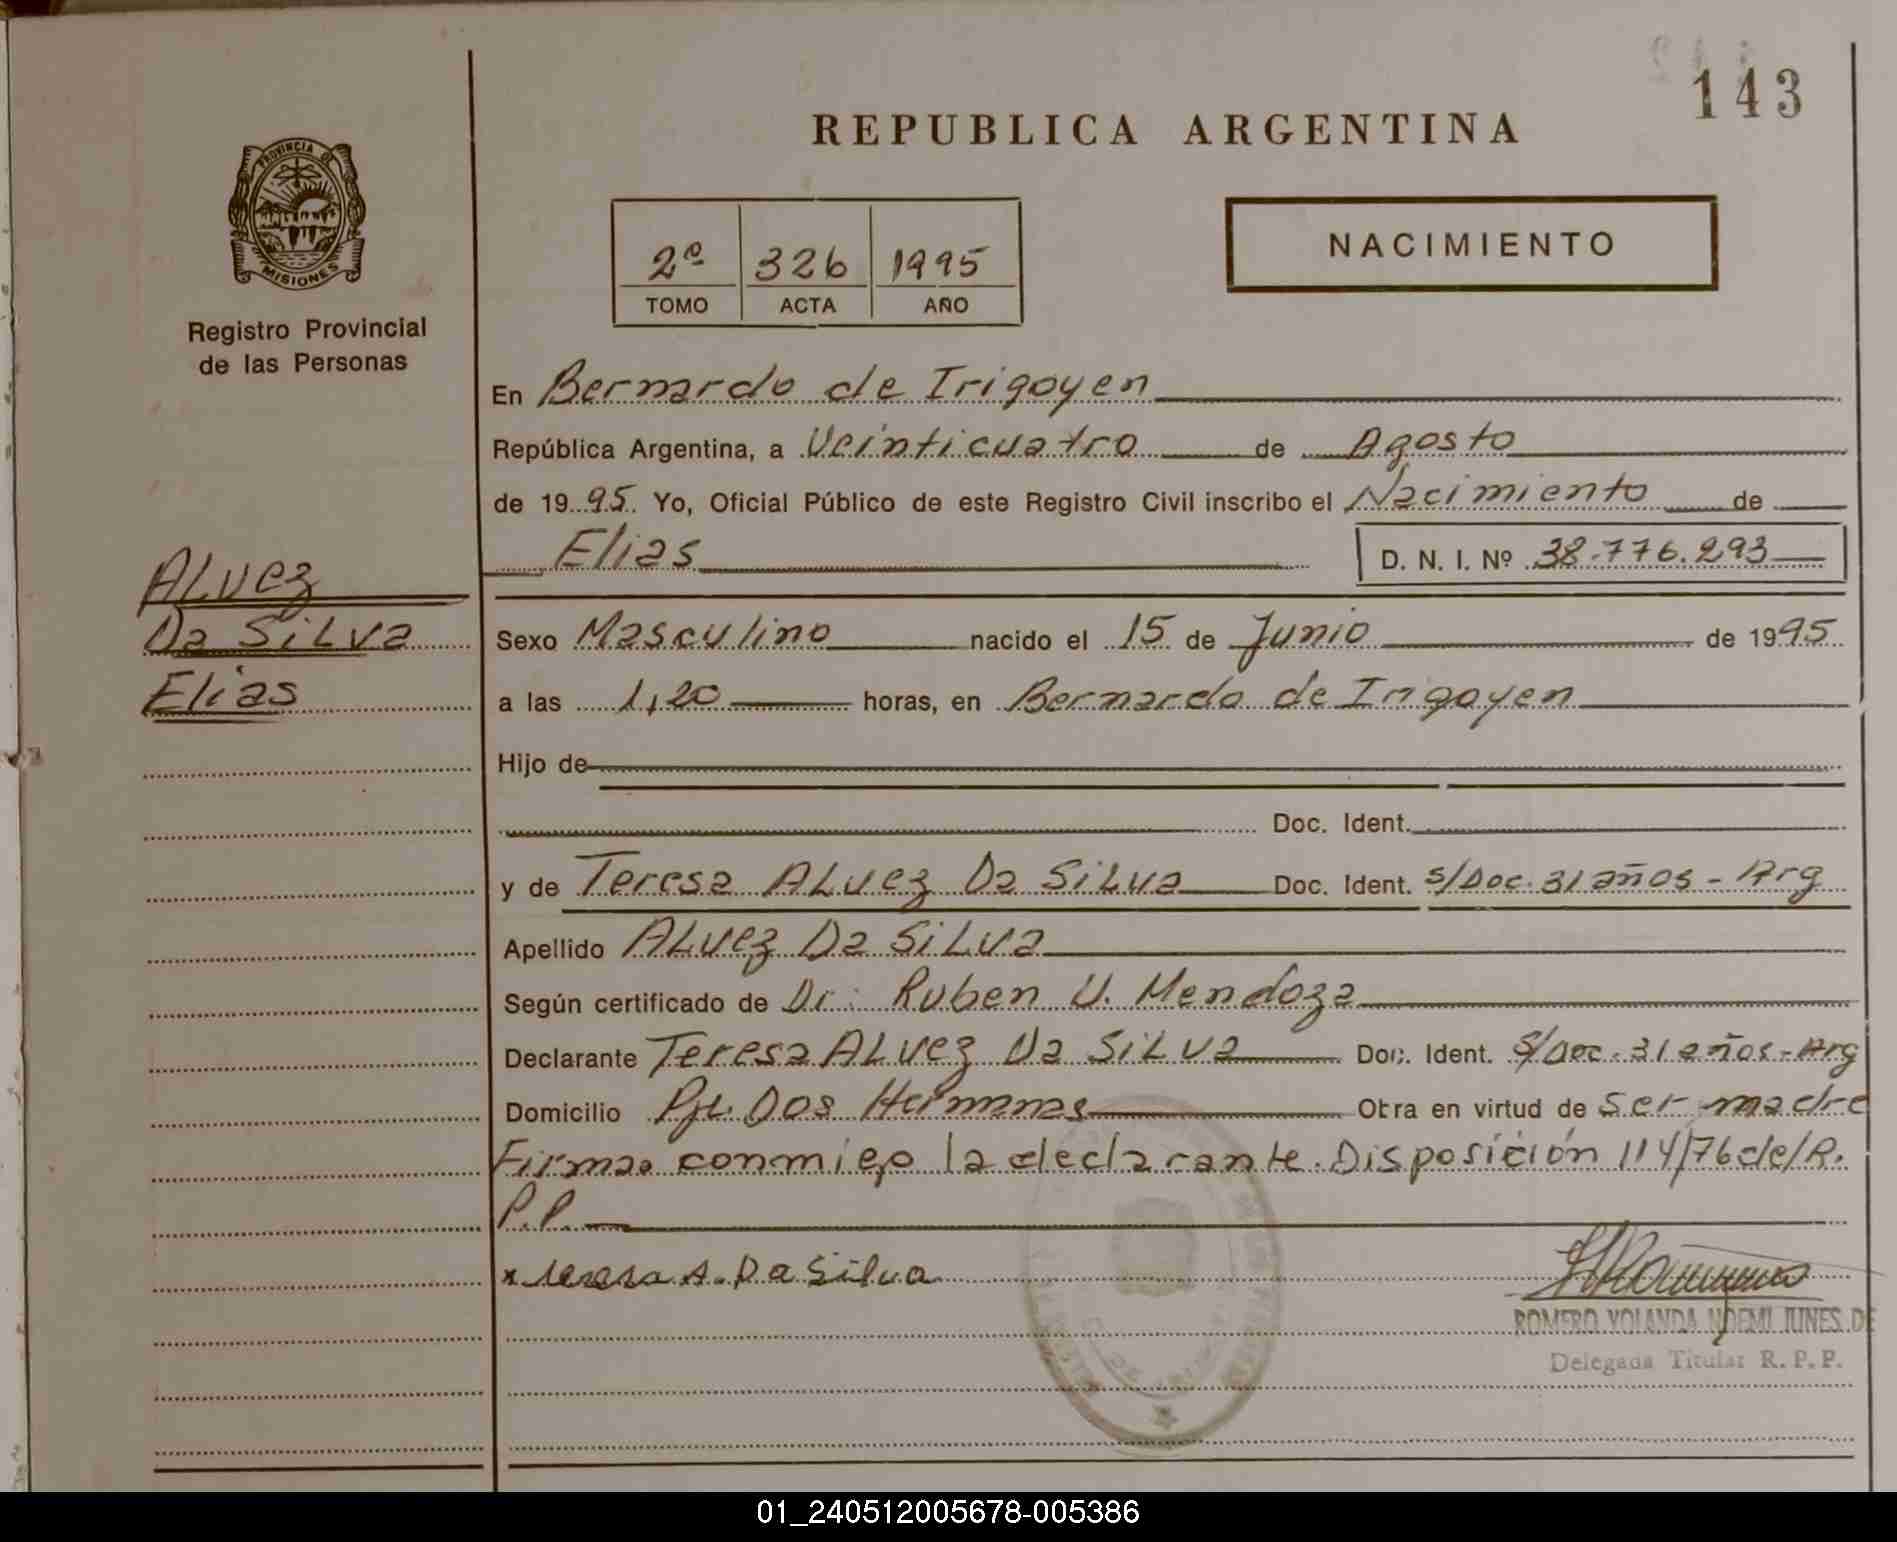 143
REPUBLICA ARGENTINA
PROVINCIA DE
MISIONES
Registro Provincial
de las Personas
2º 326 1995
TOMO ACTA AÑO
NACIMIENTO
En Bernardo de Irigoyen
República Argentina, a Veinticuatro de Agosto
de 1995 Yo, Oficial Público de este Registro Civil inscribo el Nacimiento de
Elias D. N. I. Nº 38.776.293
Alvez
Da Silva
Elias
Sexo Masculino nacido el 15 de Junio de 1995
a las 1,20 horas, en Bernardo de Irigoyen
Hijo de
Doc. Ident.
y de Teresa Alvez Da Silva Doc. Ident. s/Doc. 31 años - Arg
Apellido Alvez Da Silva
Según certificado de Dr. Ruben U. Mendoza
Declarante Teresa Alvez Da Silva Doc. Ident. S/Doc. 31 años - Arg
Domicilio Pje. Dos Hermanas Obra en virtud de ser madre
Firma conmigo la declarante. Disposición 114/76 del R.
P.P.
x teresa A. Da Silva
ROMERO YOLANDA NOEMI IUNES DE
Delegada Titular R. P. P.
01_240512005678-005386